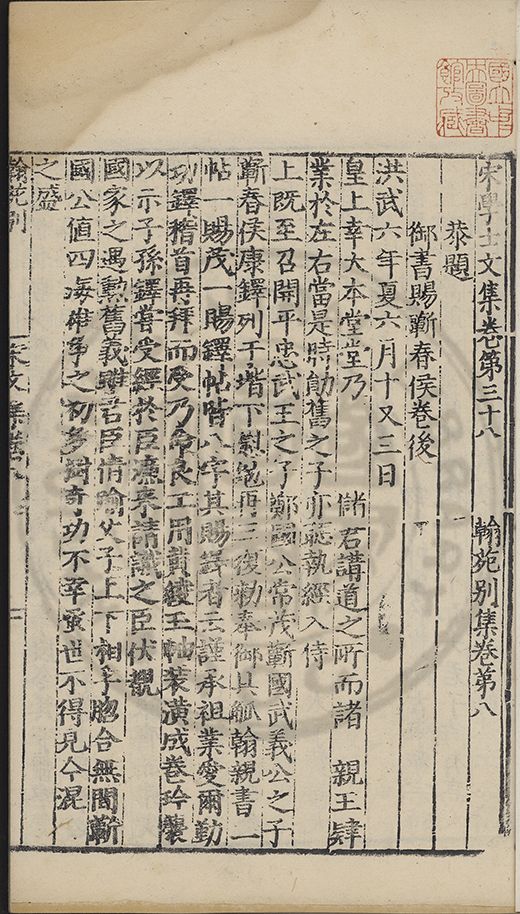 宋學士文集卷第三十八 翰苑别集卷第八
恭題
御書賜蘄春侯卷後
洪武六年夏六月十又三日
皇上幸大本堂堂乃 儲君講道之所而諸 親王肄
業於左右當是時勛舊之子亦聽執經入侍
上既至召開平忠武王之子鄭國公常茂蘄國武義公之子
蘄春侯康鐸列于堦下 再三復勑奉御具觚翰親書一
帖一賜茂一賜鐸帖皆八字其賜鐸者云謹承祖業愛爾勤
功鐸稽首再拜而受乃命良工用黄綾玉軸装潢成卷珎襲
以示子孫鐸嘗受經於臣濂来請識之臣伏覩
國家之遇勲舊義雖君臣情喻父子上下相孚脗合無間蘄
國公值四海雄爭之初多樹奇功不幸蚤世不得見今混
之盛
翰苑别
宋文集卷八
國立中央圖書館收藏